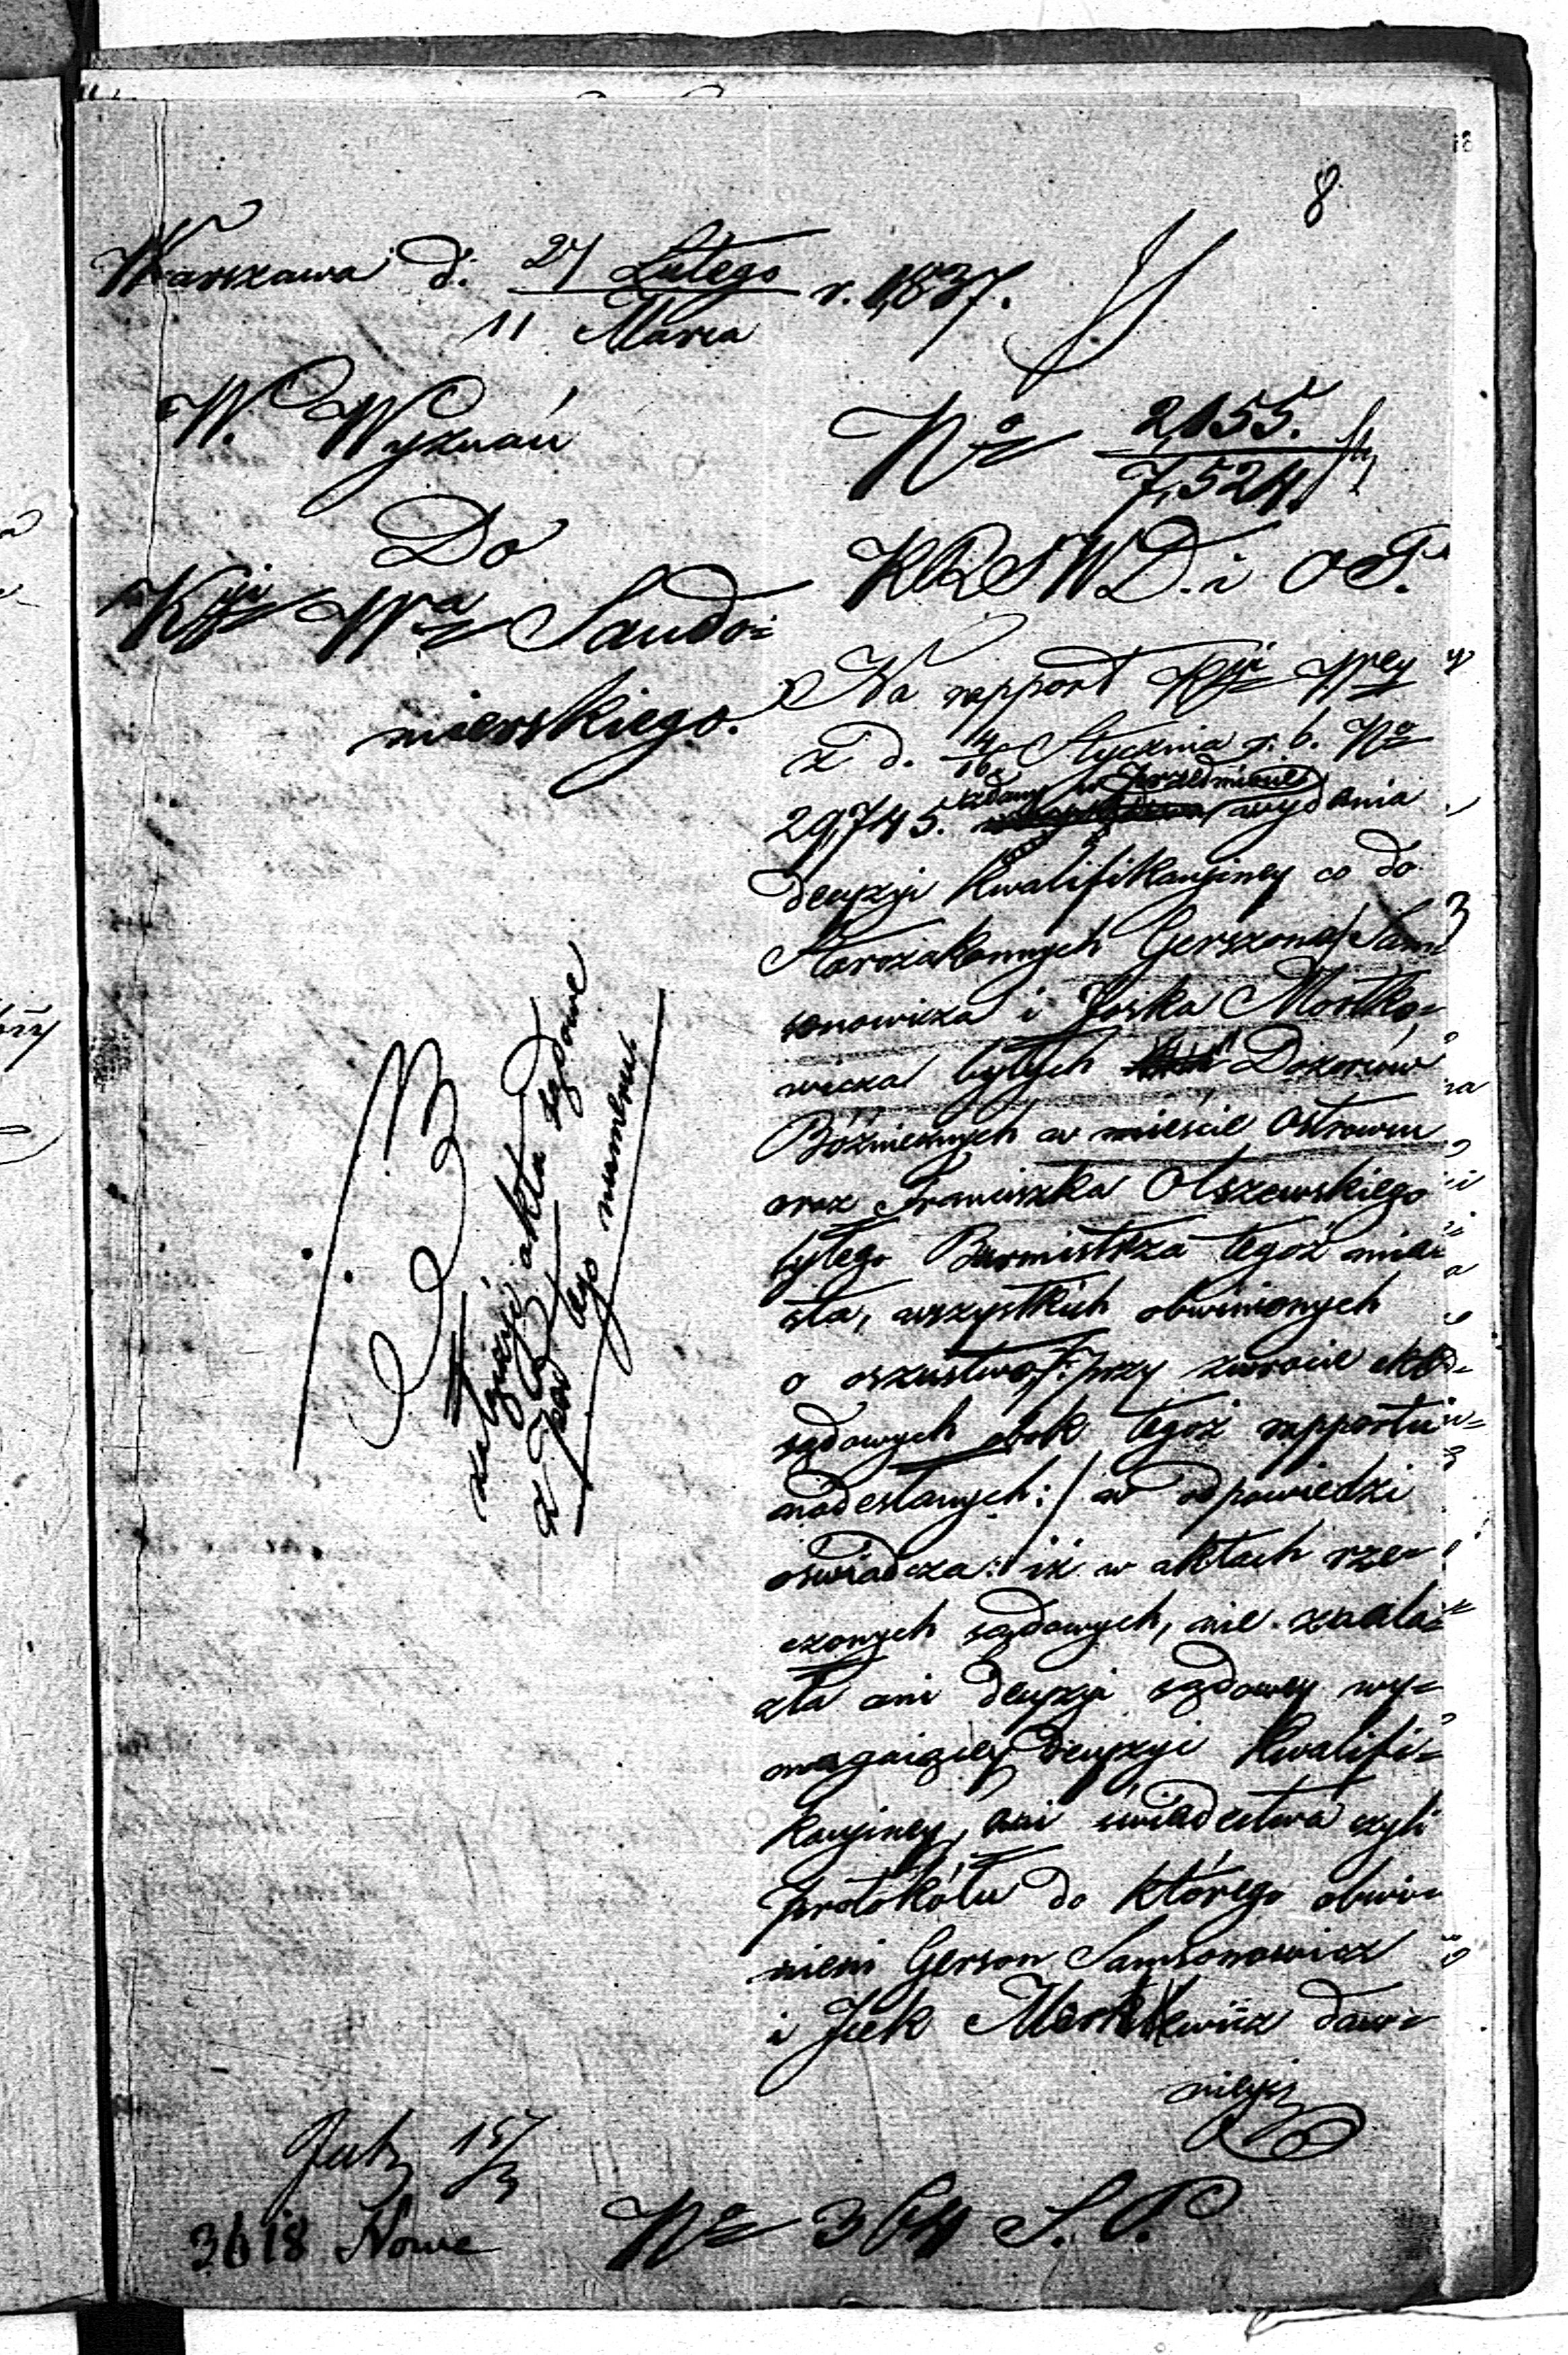 8
Warszawa d. 27 Lutego r. 1837.
11 Marca
W. Wyznań
Do
Kji Wa Sando=
mierskiego.
No 2,155.
7,524.
KRSWD. i OP.
Na rapport Kji Wey
z d. 4/16 Stycznia r. b. No
29,745. zdany w przedmiocie wydania
decyzji kwalifikacyjney co do
Starozakonnych Gerszona Sam=
sonowicza i Joska Mortko=
wicza byłych Dozorców
Bóźnicznych w mieście Ostrowcu
oraz Franciszka Olszewskiego
byłego Burmistrza tegoż mia=
sta, wszystkich obwinionych
o oszustwo, /: przy zwrocie akt
sądowych obok tegoż rapportu
nadesłanych :/ w odpowiedzi
oświadcza: iż w aktach rze=
czonych sądowych, nie znala=
zła ani decyzji sądowey wy=
magaiącey decyzyi kwalifi=
kacyiney, ani świadectwa czyli
protokółu do którego obwi=
nieni Gerson Samsonowicz
i Jcek Mortkiewicz daw=
nieysi
NB
załączyć akta sądowe
z pod tego numeru
15/3
3618 Nowe
No 364 S. P.